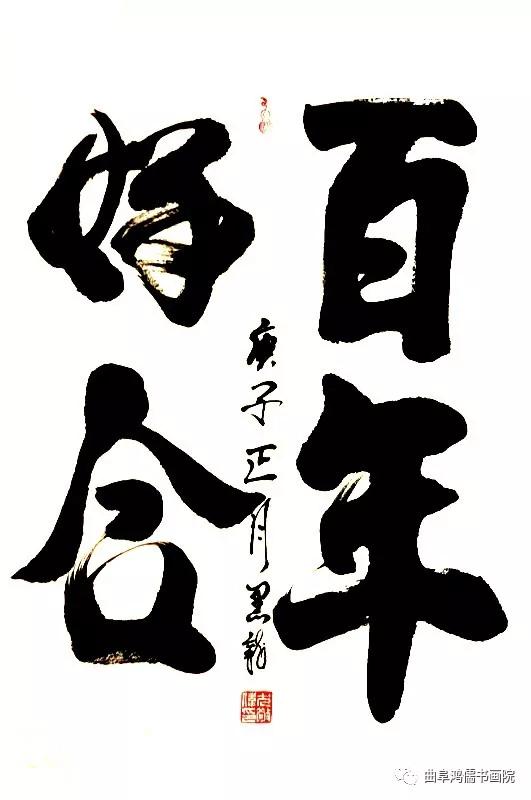 百年
好合
庚子正月黑龙
曲阜鸿儒书画院